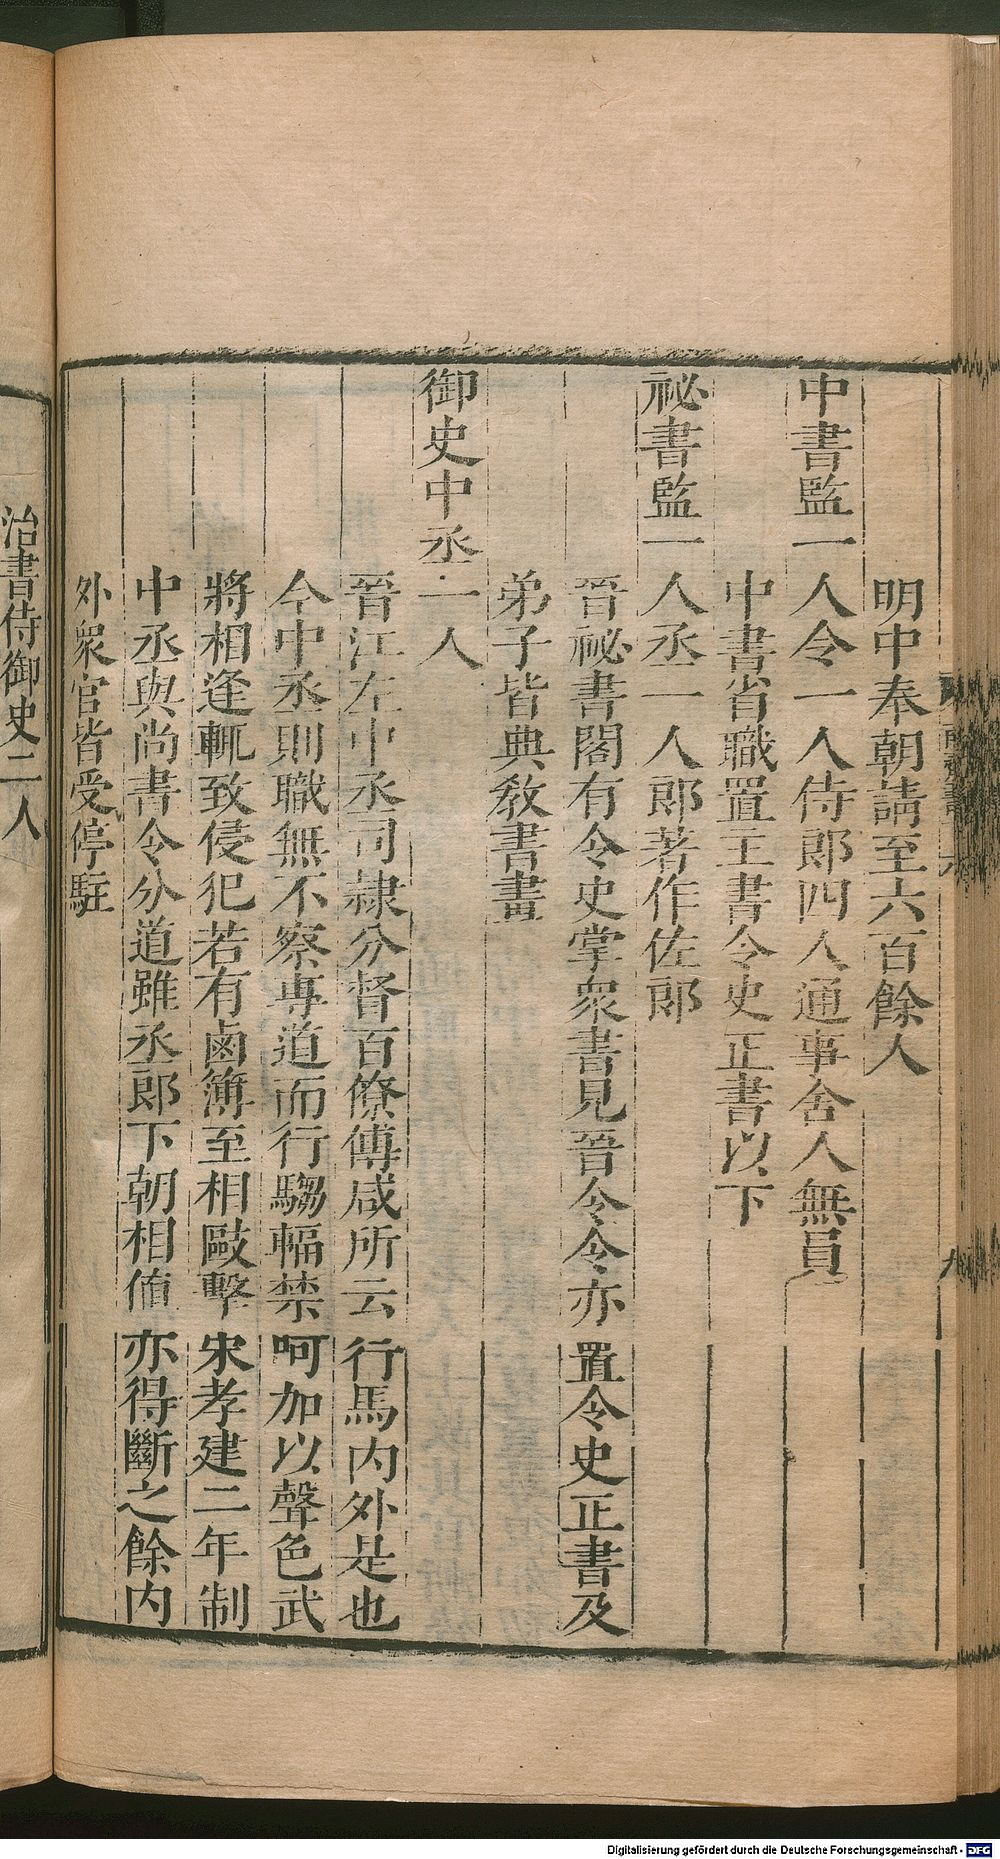 明中奉朝請至六百餘人
中書監一人令一人侍郎四人通事舍人無員
中書省職置主書令史正書以下
祕書監一人丞一人郎著作佐郎
晉祕書閣有令史掌衆書見晉令令亦置令史正書及
弟子皆典教書畫
御史中丞一人
晉江左中丞司隸分督百僚傅咸所云行馬内外是也
今中丞則職無不察專道而行騶輻禁呵加以聲色武
將相逢輒致侵犯若有鹵簿至相毆擊宋孝建二年制
中丞與尚書令分道雖丞郎下朝相値亦得斷之餘内
外衆官皆受停駐
治書侍御史二人
Digitalisierung gefördert durch die Deutsche Forschungsgemeinschaft - DFG